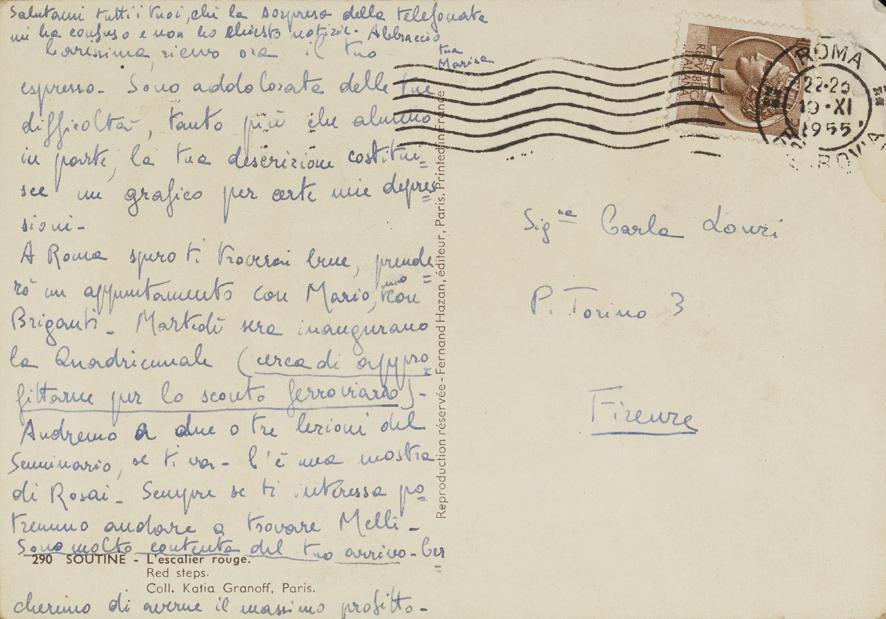 Salutami tutti i tuoi, chi la sorpresa della telefonata
mi ha confuso e non ho chiesto notizie. Abbraccio
tua
Marisa
Carissima, ricevo ora il tuo
espresso. Sono addolorata delle tue
difficoltà, tanto più che almeno
in parte, la tua descrizione costitui=
sce un grafico per certe mie depres
sioni.
A Roma spero ti troverai bene, prende=
rò un appuntamento con Mario, uno con
Briganti. Martedì sera inaugurano
la Quadriennale (cerca di appro=
fittarne per lo sconto ferroviario).
Andremo a due o tre lezioni del
Seminario, se ti va. C'è una mostra
di Rosai. Sempre se ti interessa po=
tremmo andare a trovare Melli.
Sono molto contenta del tuo arrivo. Cer=
290 SOUTINE - L'escalier rouge.
Red steps.
Coll. Katia Granoff, Paris.
cheremo di averne il massimo profitto.
Reproduction réservée - Fernand Hazan, éditeur, Paris. Printed in France
REPUBBLICA
ITALIANA
ROMA
22-23
10·XI
1955
FERROVIA
Sig.na Carla Lonzi
P. Torino 3
Firenze